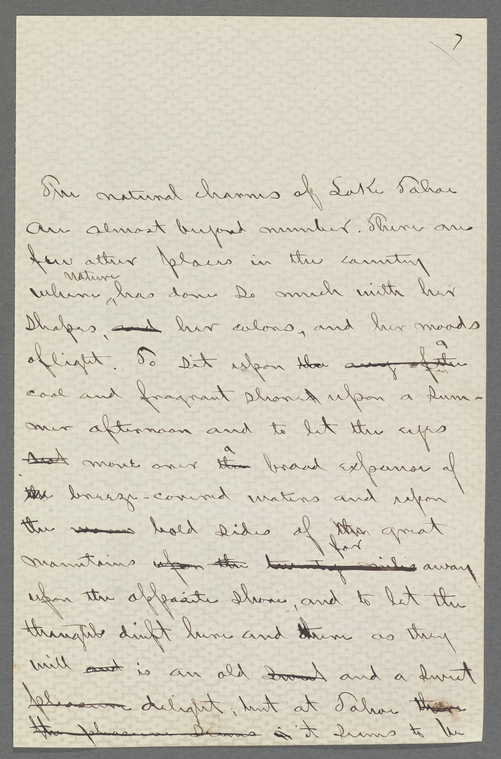 7
The natural charms of Lake Tahoe
are almost beyond number. There are
few other places in the country
nature
where has done so much with her
shapes, and her colors, and her moods
of light. To sit upon the a
cool and fragrant shore upon a sum-
mer afternoon and to let the eyes
rest move over the a broad expanse of
the breeze-covered waters and upon
the bold sides of the great
far
mountains upon the twenty miles away
upon the opposite shore, and to let the
thoughts drift here and there as they
will and is an old sweet and a sweet
pleasure delight; but at Tahoe there
the pleasure seems it seems to be